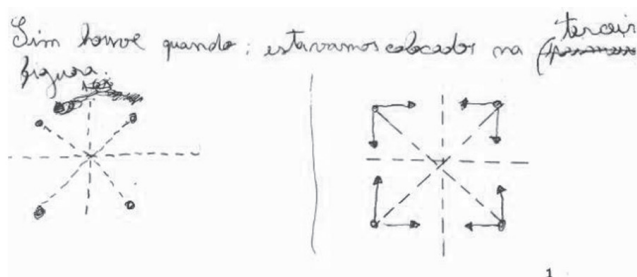 Sim houve quando: estavamos colocados na terceir
figura.
1